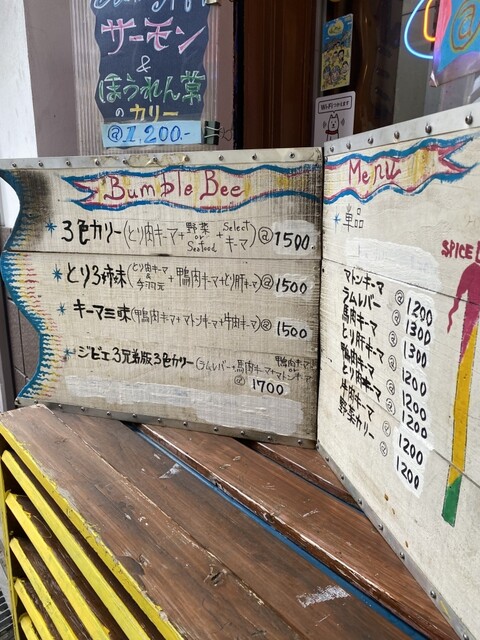 サーモン
&
ほうれん草
のカリー
@1,200.-
Wi-Fiつかえます
Bumble Bee
Menu
*3色カリー(とり肉キーマ+野菜 or Seafood+Selectキーマ)@1500.
*とり3姉妹(とり肉キーマ&今川元+鴨肉キーマ+とり肝キーマ)@1500
*キーマ三昧(鴨肉キーマ+マトンキーマ+牛肉キーマ)@1500
*ジビエ3兄弟版3色カリー(ラムレバー+馬肉キーマ+マトンキーマ
@1700
*単品
マトンキーマ @1200
ラムレバー @1300
馬肉キーマ @1300
とり肝キーマ @1200
鴨肉キーマ @1200
とり肉キーマ @1200
牛肉キーマ @1200
野菜カリー @1200
SPICE